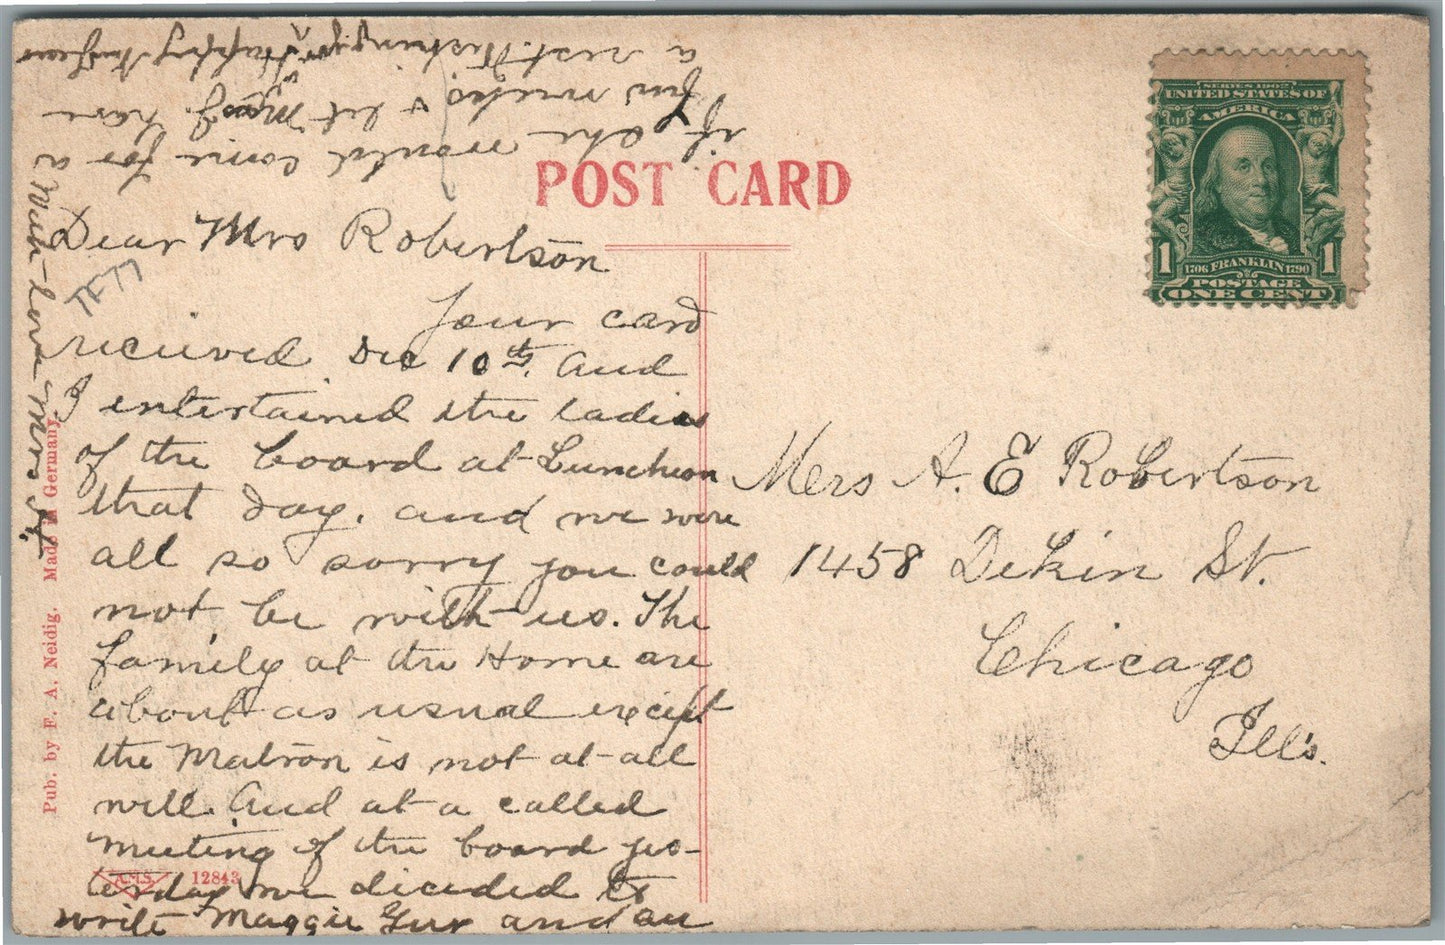 POST CARD
SERIES 1902
UNITED STATES OF
AMERICA
1 1706 FRANKLIN 1790 1
POSTAGE
ONE CENT
Dear Mrs Robertson
Your card
received Dec 10th. And
I entertained the ladies
of the board at Luncheon
that day. and we were
all so sorry you could
not be with us. The
family at the Home are
about as usual except
the Matron is not at all
well. And at a called
meeting of the board yes-
terday we decided to
write Maggie Gur and
if she would come for a
few weeks & let Mrs have
a rest. Wishing you Happy
Much love Mrs
TF77
Mrs A. E Robertson
1458 Dekin St.
Chicago
Ill's.
Pub. by F. A. Neidig. Made in Germany.
A.M.S. 12843